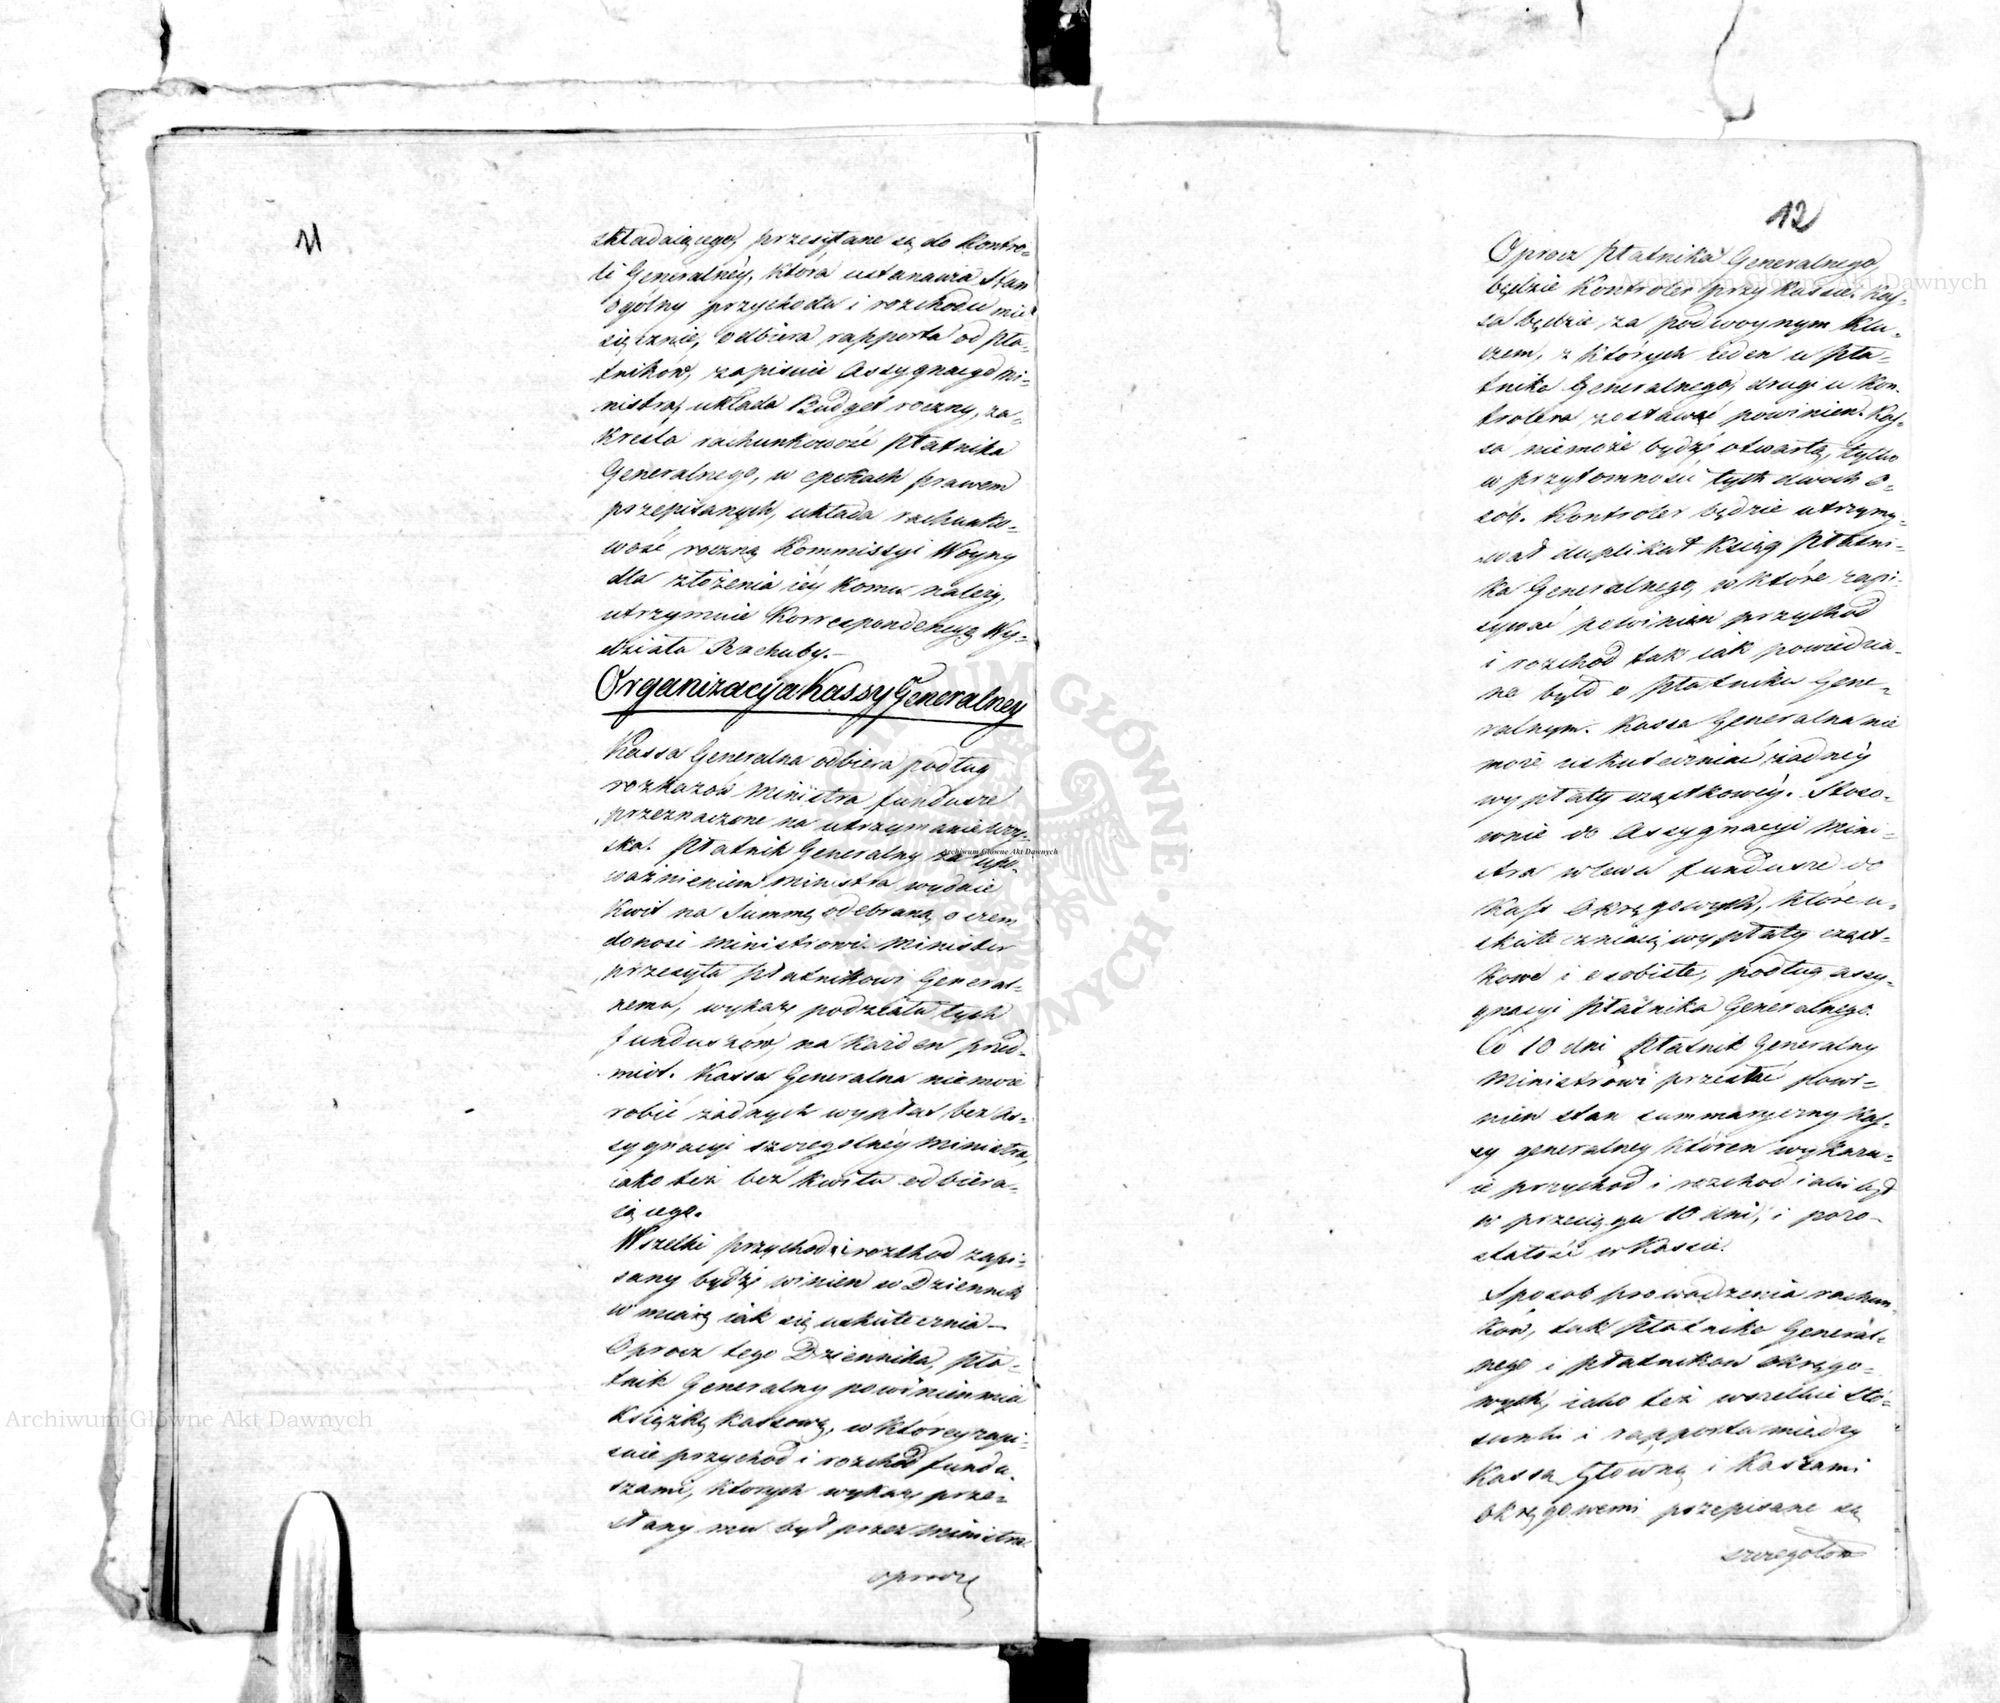 11
składaiącego, przesyłane są do Kontro-
li Generalney, która ustanawia Stan
ogólny przychodu i rozchodu mie
sięcznie, odbiera rapporta od Pła-
tników, zapisuie Assygnacye Mi-
nistra, układa Budget roczny, za-
kreśla rachunkowość Płatnika
Generalnego, w epokach prawem
przepisanych, układa rachunko-
wość roczną Kommissyi Woyny
dla złożenia iéy komu należy,
utrzymuie Korrespondencyą Wy-
działu Rachuby.—
Organizacya Kassy Generalney
Kassa Generalna odbiera podług
rozkazów Ministra fundusze
przeznaczone na utrzymanie Woy-
ska. Płatnik Generalny za upo-
ważnieniem Ministra wydaie
Kwit na Summę odebraną, o czem
donosi Ministrowi. Minister
przesyła Płatnikowi General-
nemu, wykazy podziału tych
funduszów, na każden przed-
miot. Kassa Generalna niemoże
robić żadnych wypłat, bez As-
sygnacyi szczególnéy Ministra,
iako też bez kwitu odbiera-
iącego.
Wszelki przychód i rozchod zapi-
sany bydź winien w Dziennik
w miarę iak się uskutecznia—
Oprocz tego Dziennika, Pła-
tnik Generalny powinien mieć
Książkę Kassową, w którey zapi-
suie przychod i rozchod fundu-
szami, ktorych wykazy prze-
słany mu był przez Ministra
oprocz
12
Oprocz Płatnika Generalnego
będzie Kontroler przy Kassie. Kas-
sa będzie za podwoynym Klu-
czem, z których ieden u Pła-
tnika Generalnego, drugi u Kon-
trolera zostawać powinien. Kas-
sa niemoże bydź otwartą, tylko
w przytomności tych dwoch o-
sob. Kontroler będzie utrzymy-
wał duplikat Ksiąg Płatni-
ka Generalnego, w które zapi-
sywać powinien przychod
i rozchod tak iak powiedzia-
no było o Płatniku Gene-
ralnym. Kassa Generalna nie
może uskuteczniać żadnéy
wypłaty cząstkowéy. Stoso-
wnie do Assygnacyi Mini-
stra wlewa fundusze do
Kass Okręgowych, które u-
skuteczniaią wypłaty cząst-
kowe i osobiste, podług assy-
gnacyi Płatnika Generalnego.
Co 10 dni Płatnik Generalny
Ministrowi przesłać powi-
nien stan summaryczny Kas-
sy generalney któren wykazu-
ie przychod i rozchod iaki był
w przeciągu 10 dni, i pozo-
stałość w Kassie.
Sposob prowadzenia rachun-
ków, tak Płatnika General-
nego i płatnikow okręgo-
wych, iako też wszelkie sto-
sunki i rapporta między
Kassą Głowną i Kassami
okręgowemi przepisane są
szczególow
Archiwum Główne Akt Dawnych
Archiwum Główne Akt Dawnych
Archiwum Główne Akt Dawnych